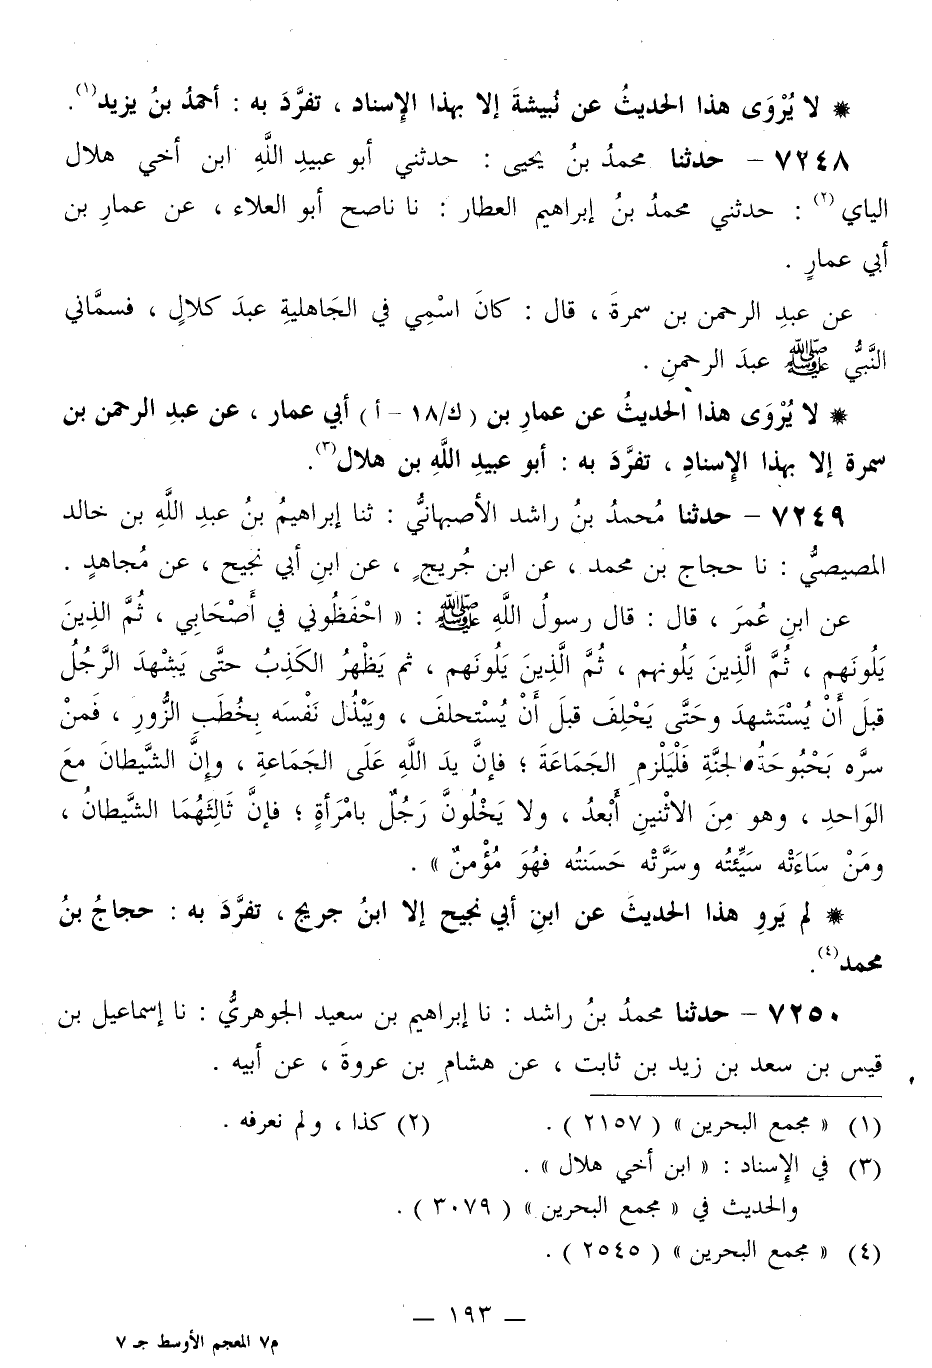 * لا يُرْوَى هذا الحديثُ عن نُبيشةَ إلا بهذا الإسناد ، تفرَّدَ به : أحمدُ بنُ يزيد(١).
٧٢٤٨ – حدثنا محمدُ بنُ يحيى : حدثني أبو عبيدِ اللَّهِ ابن أخي هلال
الياي(٢) : حدثني محمدُ بنُ إبراهيم العطار : نا ناصح أبو العلاء ، عن عمارِ بن
أبي عمارٍ .
عن عبدِ الرحمن بن سمرةَ ، قال : كانَ اسْمِي في الجَاهليةِ عبدَ كلالٍ ، فسمَّاني
النَّبيُّ ﷺ عبدَ الرحمنِ .
* لا يُرْوَى هذا الحديثُ عن عمارِ بن ( ك/١٨ – أ ) أبي عمار ، عن عبدِ الرحمن بن
سمرة إلا بهذا الإسنادِ ، تفرَّدَ به : أبو عبيدِ اللَّهِ بن هلال(٣).
٧٢٤٩ – حدثنا مُحمدُ بنُ راشد الأصبهانيُّ : ثنا إبراهيمُ بنُ عبدِ اللَّهِ بن خالد
المصيصيُّ : نا حجاج بن محمد ، عن ابن جُريجٍ ، عن ابنِ أبي نجيح ، عن مُجاهدٍ .
عن ابنِ عُمرَ ، قال : قال رسولُ اللَّهِ ﷺ : « احْفَظُوني في أَصْحَابِي ، ثُمَّ الذِينَ
يَلُونَهم ، ثُمَّ الَّذِينَ يَلونهم ، ثُمَّ الَّذِينَ يَلُونَهم ، ثم يَظْهرُ الكَذِبُ حتَّى يَشْهدَ الرَّجُلُ
قبلَ أَنْ يُسْتَشهدَ وحَتَّى يَحْلِفَ قبلَ أَنْ يُسْتحلفَ ، ويَبْذُل نَفْسَه بِخُطَبِ الزُّورِ ، فَمنْ
سرَّه بَحْبُوحَةُ الجنَّةِ فَلْيَلْزمِ الجَمَاعَةَ ؛ فإنَّ يدَ اللَّهِ عَلَى الجَمَاعةِ ، وإِنَّ الشَّيطانَ معَ
الوَاحدِ ، وهو مِنَ الاثْنينِ أَبْعدُ ، ولا يَخْلُونَّ رَجُلٌ بامْرَأةٍ ؛ فإنَّ ثَالِثَهُمَا الشَّيطانُ ،
ومَنْ سَاءَتْه سَيِّئتُه وسرَّتْه حَسَنَتُه فهُوَ مُؤْمنٌ » .
* لم يَروِ هذا الحديثَ عن ابنِ أبي نجيح إلا ابنُ جريج ، تفرَّدَ به : حجاجُ بنُ
محمد(٤).
٧٢٥٠ – حدثنا محمدُ بنُ راشد : نا إبراهيم بن سعيد الجوهريُّ : نا إسماعيل بن
قيس بن سعد بن زيد بن ثابت ، عن هشامِ بن عروةَ ، عن أبيه .
(١) « مجمع البحرين » ( ٢١٥٧ ) .
(٢) كذا ، ولم نعرفه .
(٣) في الإسناد : « ابن أخي هلال » .
والحديث في « مجمع البحرين » ( ٣٠٧٩ ) .
(٤) « مجمع البحرين » ( ٢٥٤٥ ) .
— ١٩٣ —
م٧ المعجم الأوسط جـ ٧